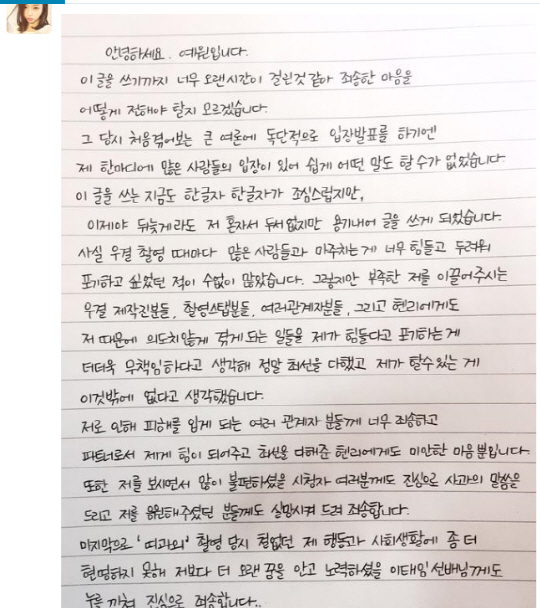 안녕하세요. 예원입니다.
이 글을 쓰기까지 너무 오랜시간이 걸린것 같아 죄송한 마음을
어떻게 전해야 할지 모르겠습니다.
그 당시 처음겪어보는 큰 여론에 독단적으로 입장발표를 하기엔
제 한마디에 많은 사람들의 입장이 있어 쉽게 어떤 말도 할 수가 없었습니다.
이 글을 쓰는 지금도 한글자 한글자가 조심스럽지만,
이제야 뒤늦게라도 저 혼자서 두서없지만 용기내어 글을 쓰게 되었습니다.
사실 우결 촬영 때마다 많은 사람들과 마주치는게 너무 힘들고 두려워
포기하고 싶었던 적이 수없이 많았습니다. 그렇지만 부족한 저를 이끌어주시는
우결 제작진분들, 촬영스탭분들, 여러관계자분들, 그리고 헨리에게도
저 때문에 의도치않게 겪게되는 일들을 제가 힘들다고 포기하는게
더더욱 무책임하다고 생각해 정말 최선을 다했고 제가 할수있는 게
이것밖에 없다고 생각했습니다.
저로 인해 피해를 입게 되는 여러 관계자 분들께 너무 죄송하고
파트너로서 제게 힘이 되어주고 최선을 다해준 헨리에게도 미안한 마음뿐입니다.
또한 저를 보시면서 많이 불편하셨을 시청자 여러분께도 진심으로 사과의 말씀을
드리고 저를 응원해주셨던 분들께도 실망시켜 드려 죄송합니다.
마지막으로 '띠과외' 촬영 당시 철없던 제 행동과 사회생활에 좀 더
현명하지 못해 저보다 더 오랜 꿈을 안고 노력하셨을 이태임 선배님께도
누를 끼쳐 진심으로 죄송합니다..